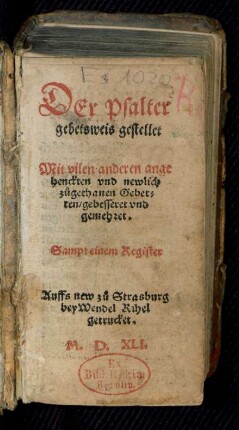 Es 1020
DEr Psalter
gebetsweis gestellet
Mit vilen anderen ange
henckten vnd newlich
zůgethanen Gebet-
ten/gebesseret vnd
gemehret.
Sampt einem Register
Auffs new zů Strasburg
bey Wendel Rihel
getrucket.
M. D. XLI.
Ex
Berolin.